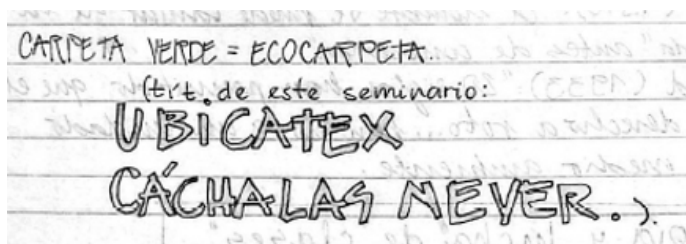 CARPETA VERDE = ECOCARPETA.
(tít. de este seminario:
UBICATEX
CÁCHALAS NEVER.).